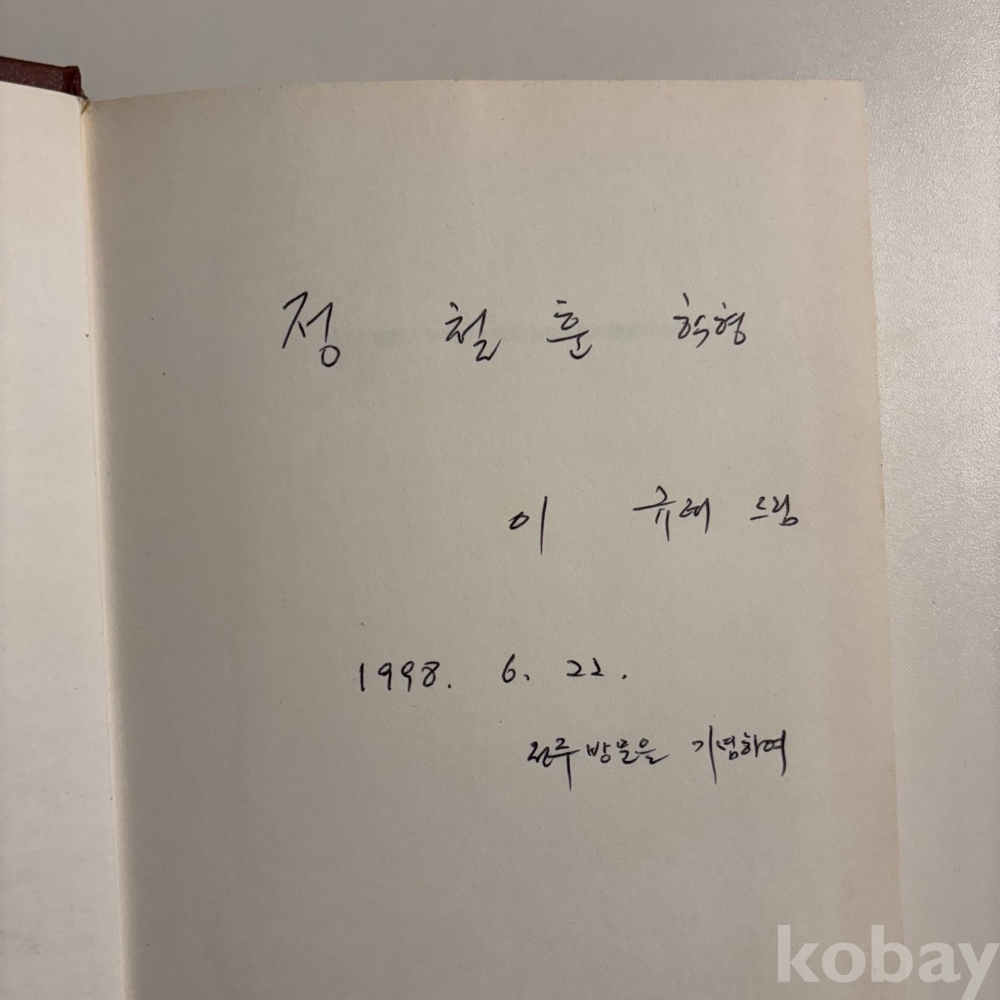 정 철훈 학형
이 규래 드림
1998. 6. 22.
방문을 기념하여
kobay